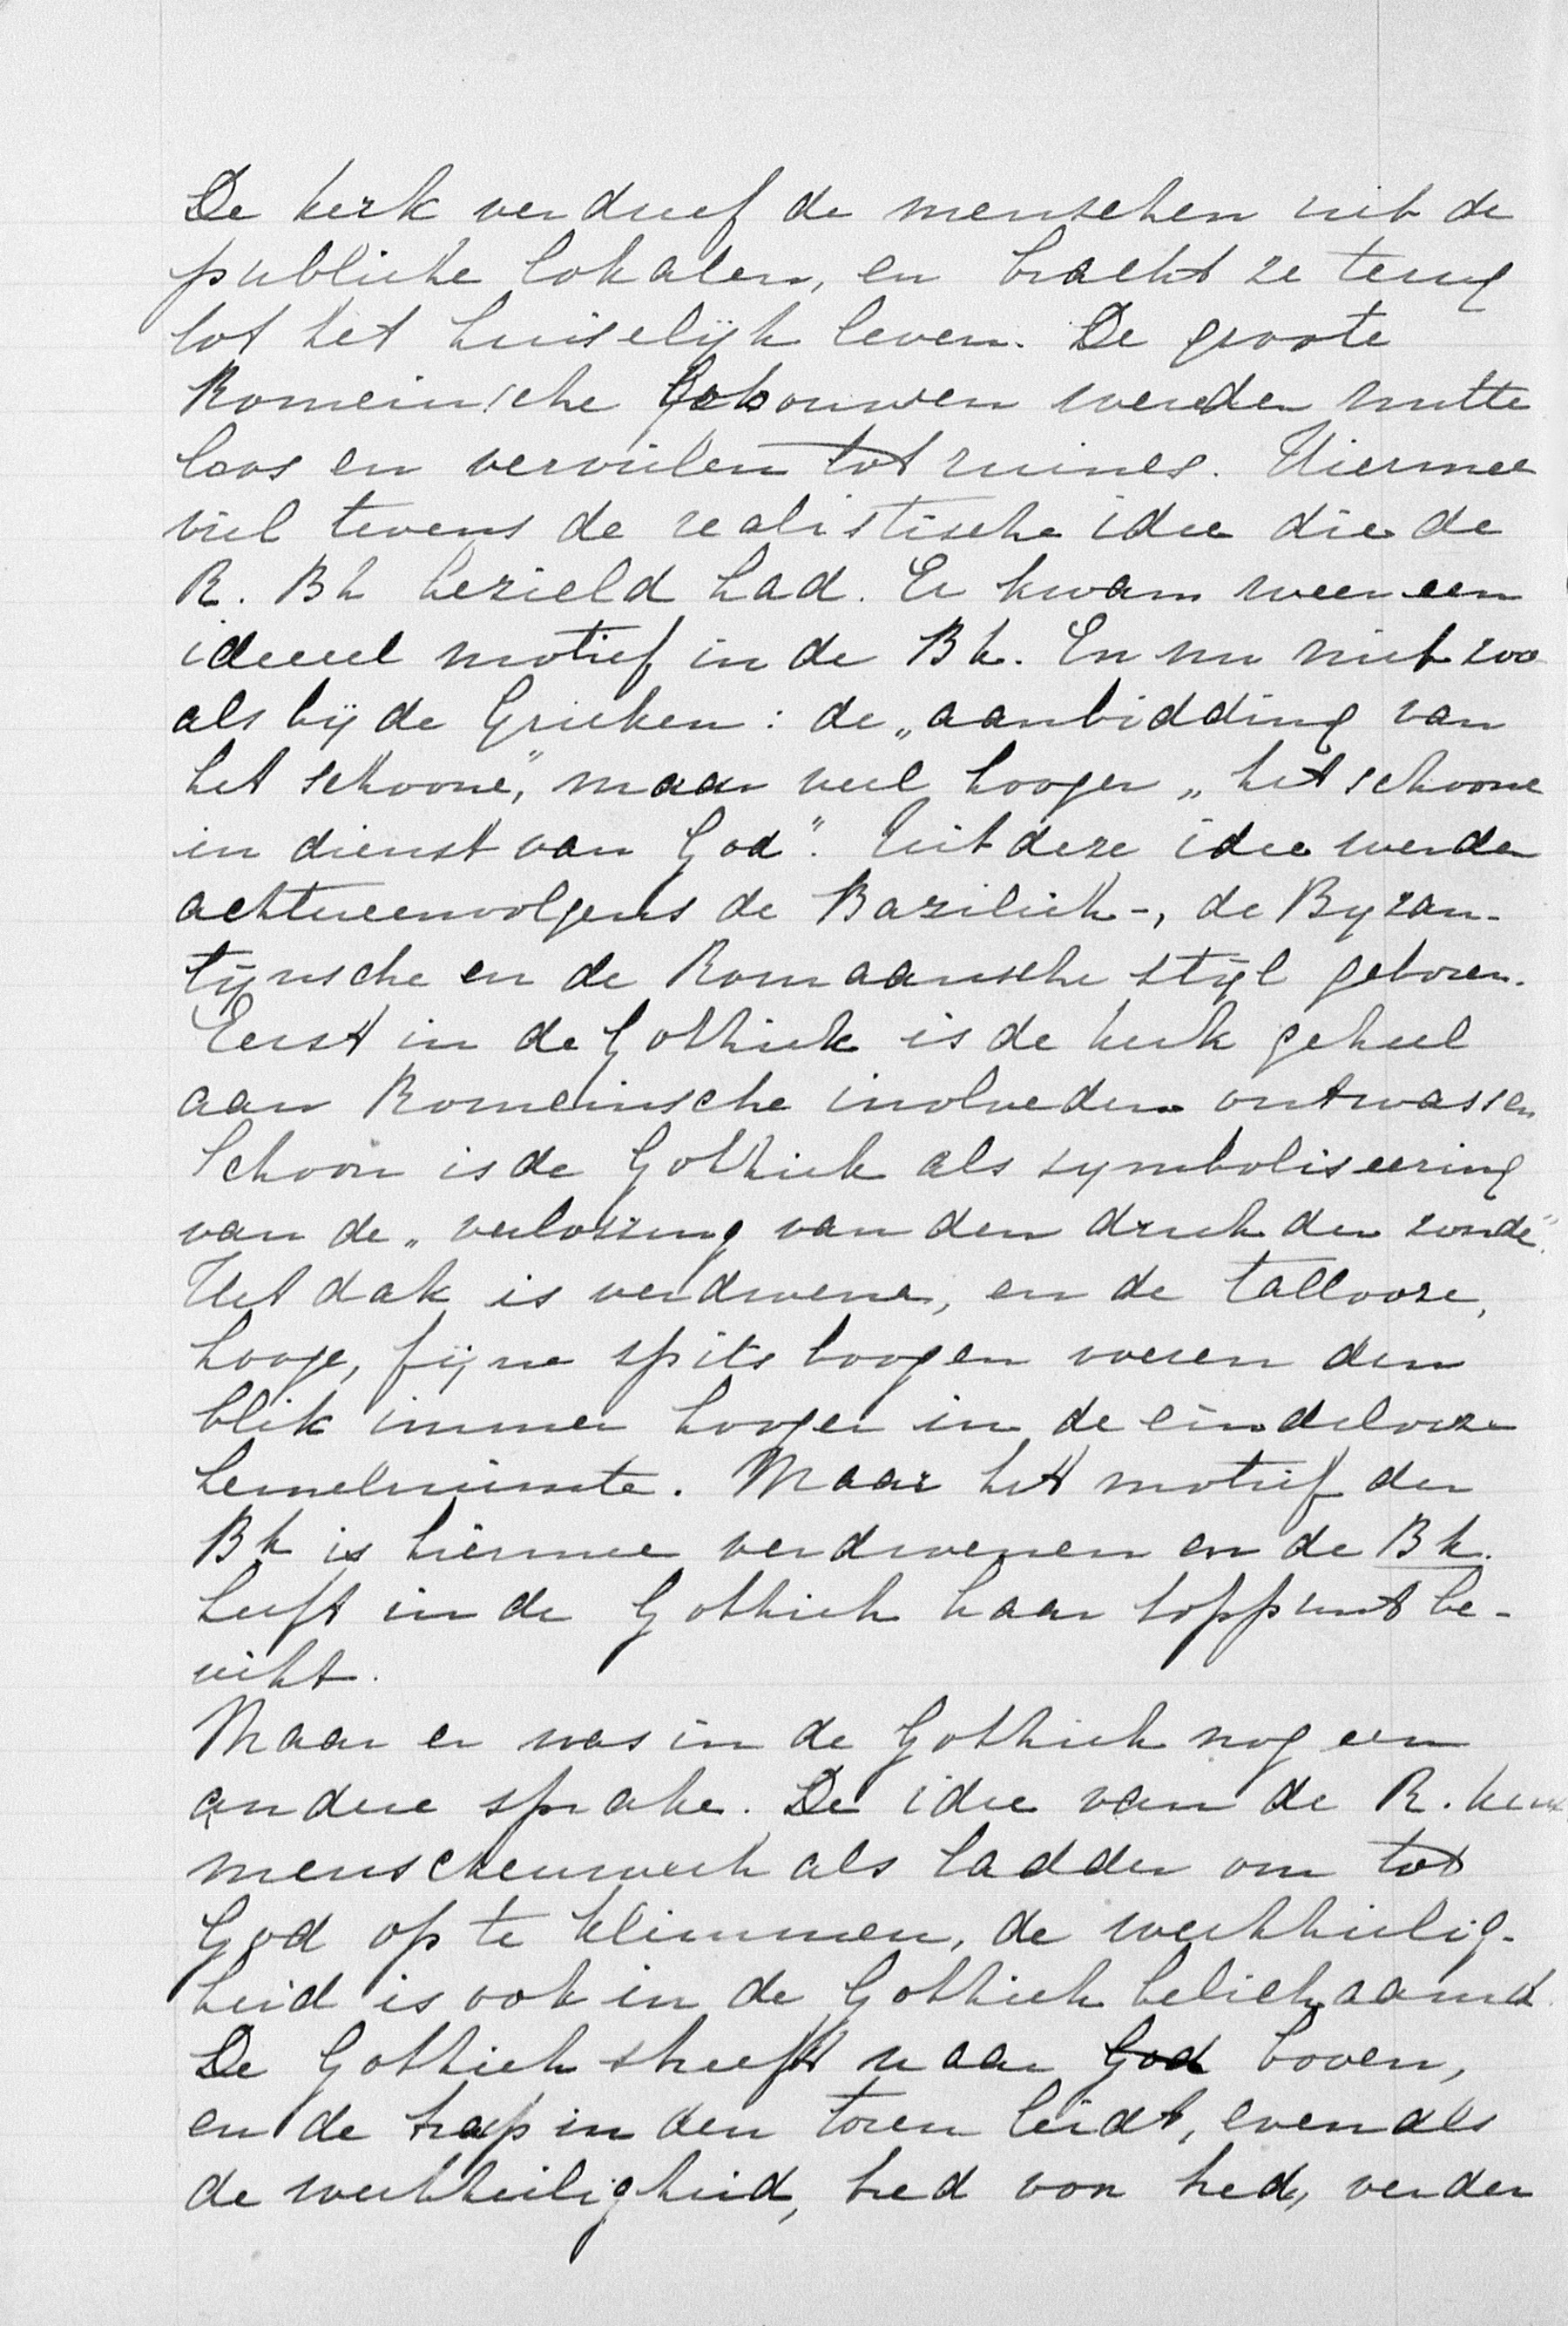 De kerk verdreef de menschen uit de
publieke lokalen, en bracht ze terug
tot het huiselijk leven. De groote
Romeinsche Gebouwen werden nutte
loos en vervielen tot ruines. Hiermee
viel tevens de realistische idee die de
R. Bk bezield had. Er kwam weer een
ideeel motief in de Bk. En nu niet zoo
als bij de Grieken: de „aanbidding van
het schoone", maar veel hooger „het schoone
in dienst van God". Uit deze idee werden
achtereenvolgens de Baziliek-, de Byzan-
tijnsche en de Romaansche stijl geboren.
Eerst in de Gothiek is de kerk geheel
aan Romeinsche invloeden ontwassen
Schoon is de Gothiek als symboliseering
van de „verlossing van den druk der zonde".
Het dak is verdwenen, en de tallooze,
hooge, fijne spits boogen voeren den
blik immer hooger in de eindelooze
hemelruimte. Maar het motief der
Bk is hiermee verdwenen en de Bk.
heeft in de Gothiek haar toppunt be-
reikt.
Maar er was in de Gothiek nog een
andere sprake. De idee van de R. kerk
menschenwerk als ladder om tot
God op te klimmen, de werkheilig-
heid is ook in de Gothiek belichaamd.
De Gothiek streeft naar God boven,
en de trap in den toren leidt, evenals
de werkheiligheid, tred voor tred, verder